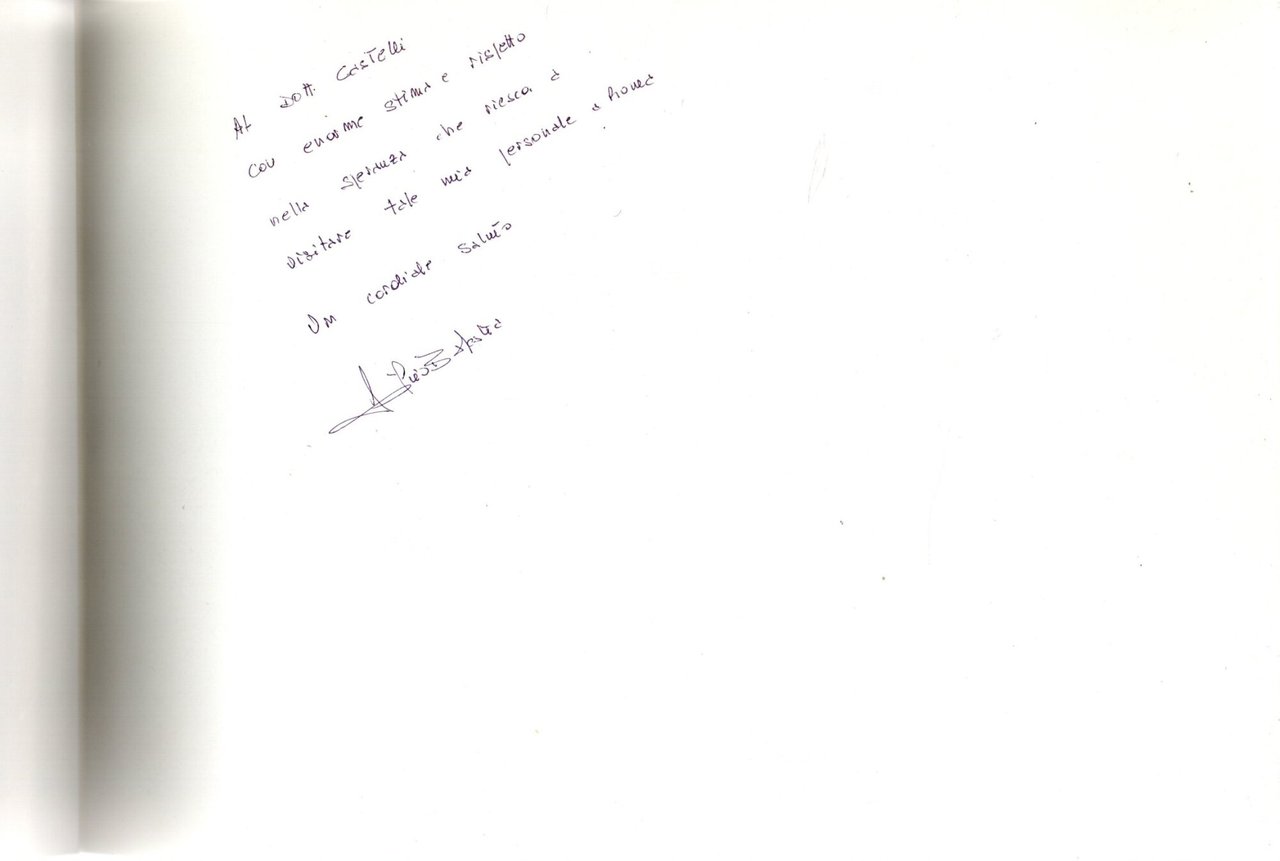 Al Dott. Castelli
con enorme stima e rispetto
nella speranza che riesca a
visitare tale mia personale a Roma
Un cordiale saluto